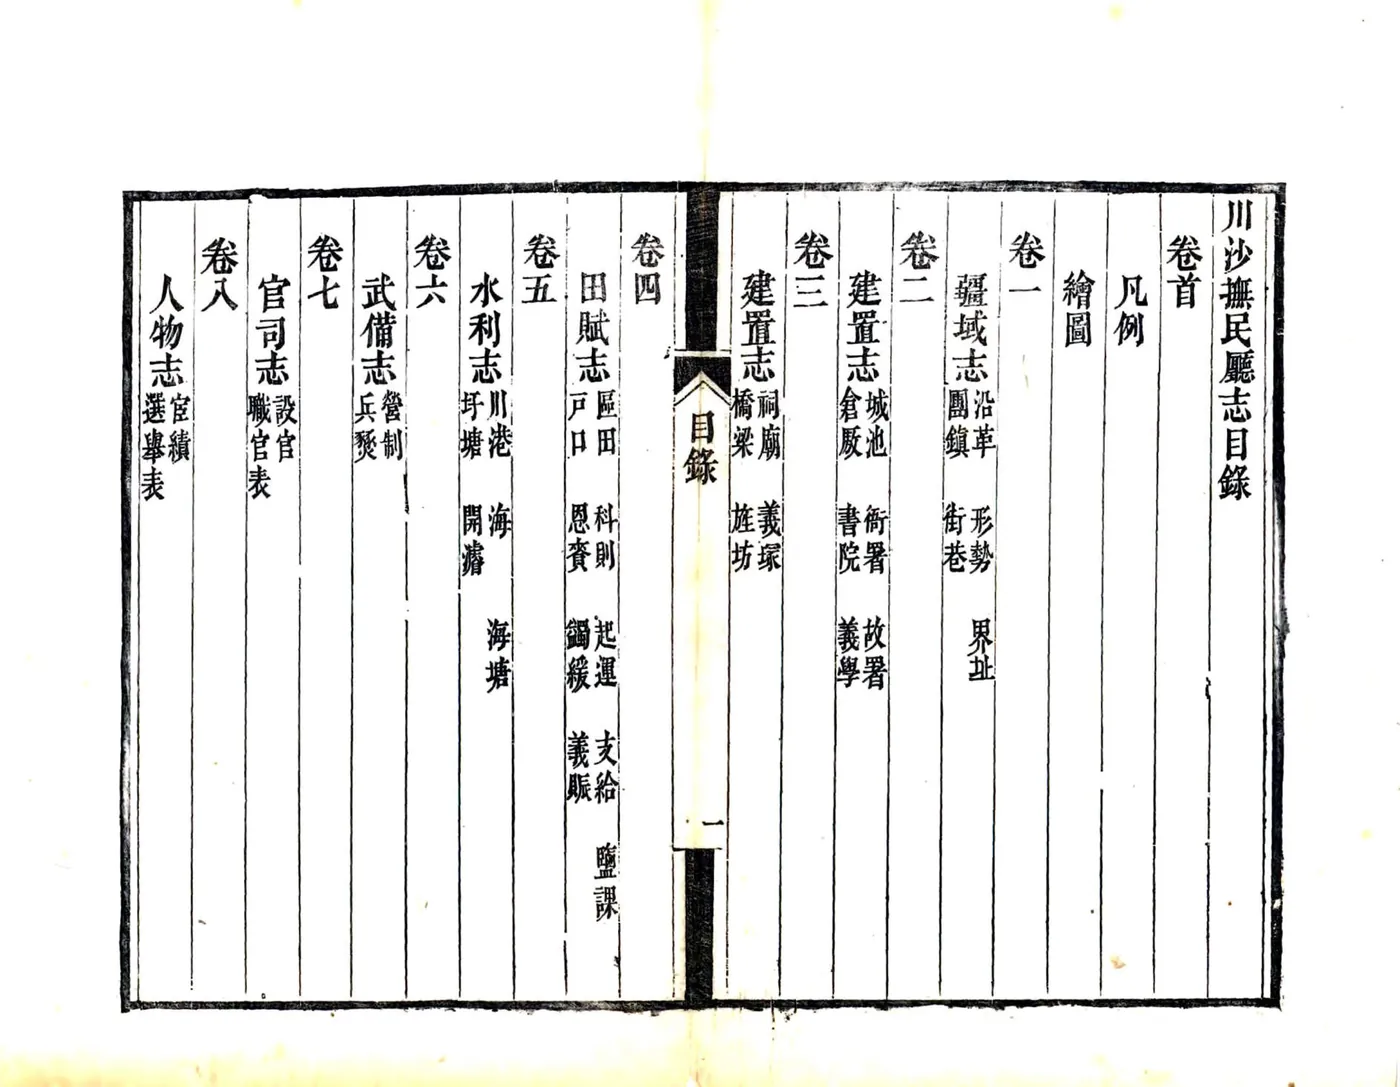 川沙撫民廳志目錄
卷首
凡例
繪圖
卷一
疆域志 沿革 形勢 界址
團鎮 街巷
卷二
建置志 城池 衙署 故署
倉厫 書院 義學
卷三
建置志 祠廟 義塚
橋梁 旌坊
目錄
一
卷四
田賦志 區田 科則 起運 支給 鹽課
戸口 恩賚 蠲緩 義賑
卷五
水利志 川港 海 海塘
圩塘 開濬
卷六
武備志 營制
兵燹
卷七
官司志 設官
職官表
卷八
人物志 宦績
選舉表